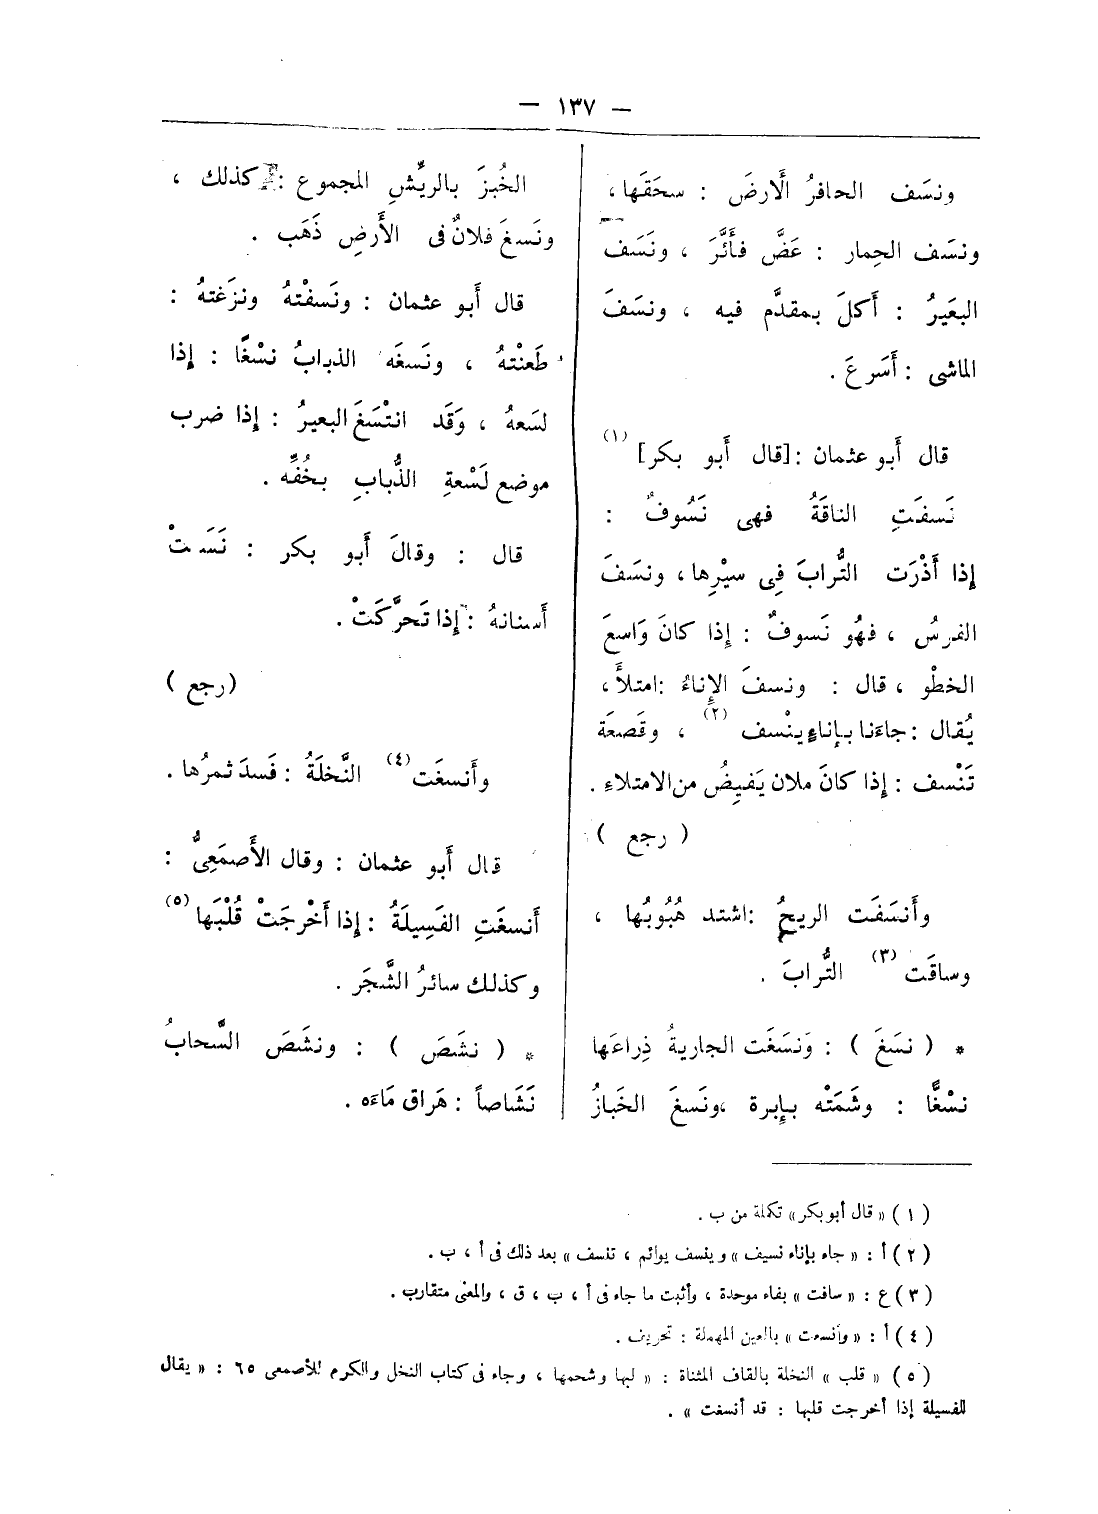 — ١٣٧ —
ونسَف الحافرُ الأرضَ : سحَقَها ،
ونسَف الحِمار : عَضَّ فأَثَّرَ ، ونَسَف
البعَيرُ : أَكلَ بمقدَّم فيه ، ونسَفَ
الماشى : أَسَرعَ .
قال أَبو عثمان : [قال أَبو بكر] (١)
نَسفَتِ الناقَةُ فهى نَسُوفٌ :
إذا أَذْرَت التُّرابَ فِى سيْرِها ، ونسَفَ
الفرسُ ، فهُو نَسوفٌ : إِذا كانَ وَاسعَ
الخطْوِ ، قال : ونسفَ الإِناءُ : امتلأَ ،
يُقال : جاءَنا بإِناءٍ ينْسف (٢) ، وقَصعَة
تَنْسف : إِذا كانَ ملان يَفيِضُ من الامتلاءِ .
( رجع )
وأَنسَفَت الريحُ : اشتد هُبُوبُها ،
وساقَت (٣) التُّرابَ .
* ( نسَغَ ) : وَنسَغَت الجاريةُ ذِراعَها
نسْغًّا : وشَمَتْه بإِبرة ، ونَسغَ الخَبازُ
الخُبزَ بالريِّشِ المجموع : كذلك ،
ونَسغَ فلانٌ فى الأَرضِ ذَهَب .
قال أَبو عثمان : ونَسفْتهُ ونزَغتهُ :
طَعنْتهُ ، ونَسغَه الذبابُ نسْغًا : إِذا
لسَعهُ ، وَقَد انتْسَغَ البعيرُ : إِذا ضرب
موضع لَسْعةِ الذُّبابِ بخُفِّه .
قال : وقالَ أَبو بكر : نَسَغَتْ
أَسنانهُ : إِذا تَحرَّكَتْ .
(رجع )
وأَنسغَت (٤) النَّخلَةُ : فَسدَ ثمرُها .
قال أَبو عثمان : وقال الأَصمَعِىُّ :
أَنسغَتِ الفَسِيلَةُ : إِذا أَخْرجَتْ قُلْبَها (٥)
وكذلك سائرُ الشَّجَر .
* ( نشَصَ ) : ونشَصَ السَّحابُ
نَشَاصاً : هَراق مَاءَه .
( ١ ) « قال أبو بكر » تكملة من ب .
( ٢ ) أ : « جاء بإناء نسيف » وينسف يوائم ، تنسف » بعد ذلك فى أ ، ب .
( ٣ ) ع : « سافت » بفاء موحدة ، وأثبت ما جاء فى أ ، ب ، ق ، والمعنى متقارب .
( ٤ ) أ : « وأنسعت » بالعين المهملة : تحريف .
( ٥ ) « قلب » النخلة بالقاف المثناة : « لبها وشحمها ، وجاء فى كتاب النخل والكرم للأصمعى ٦٥ : « يقال
للفسيلة إذا أخرجت قلبها : قد أنسغت » .